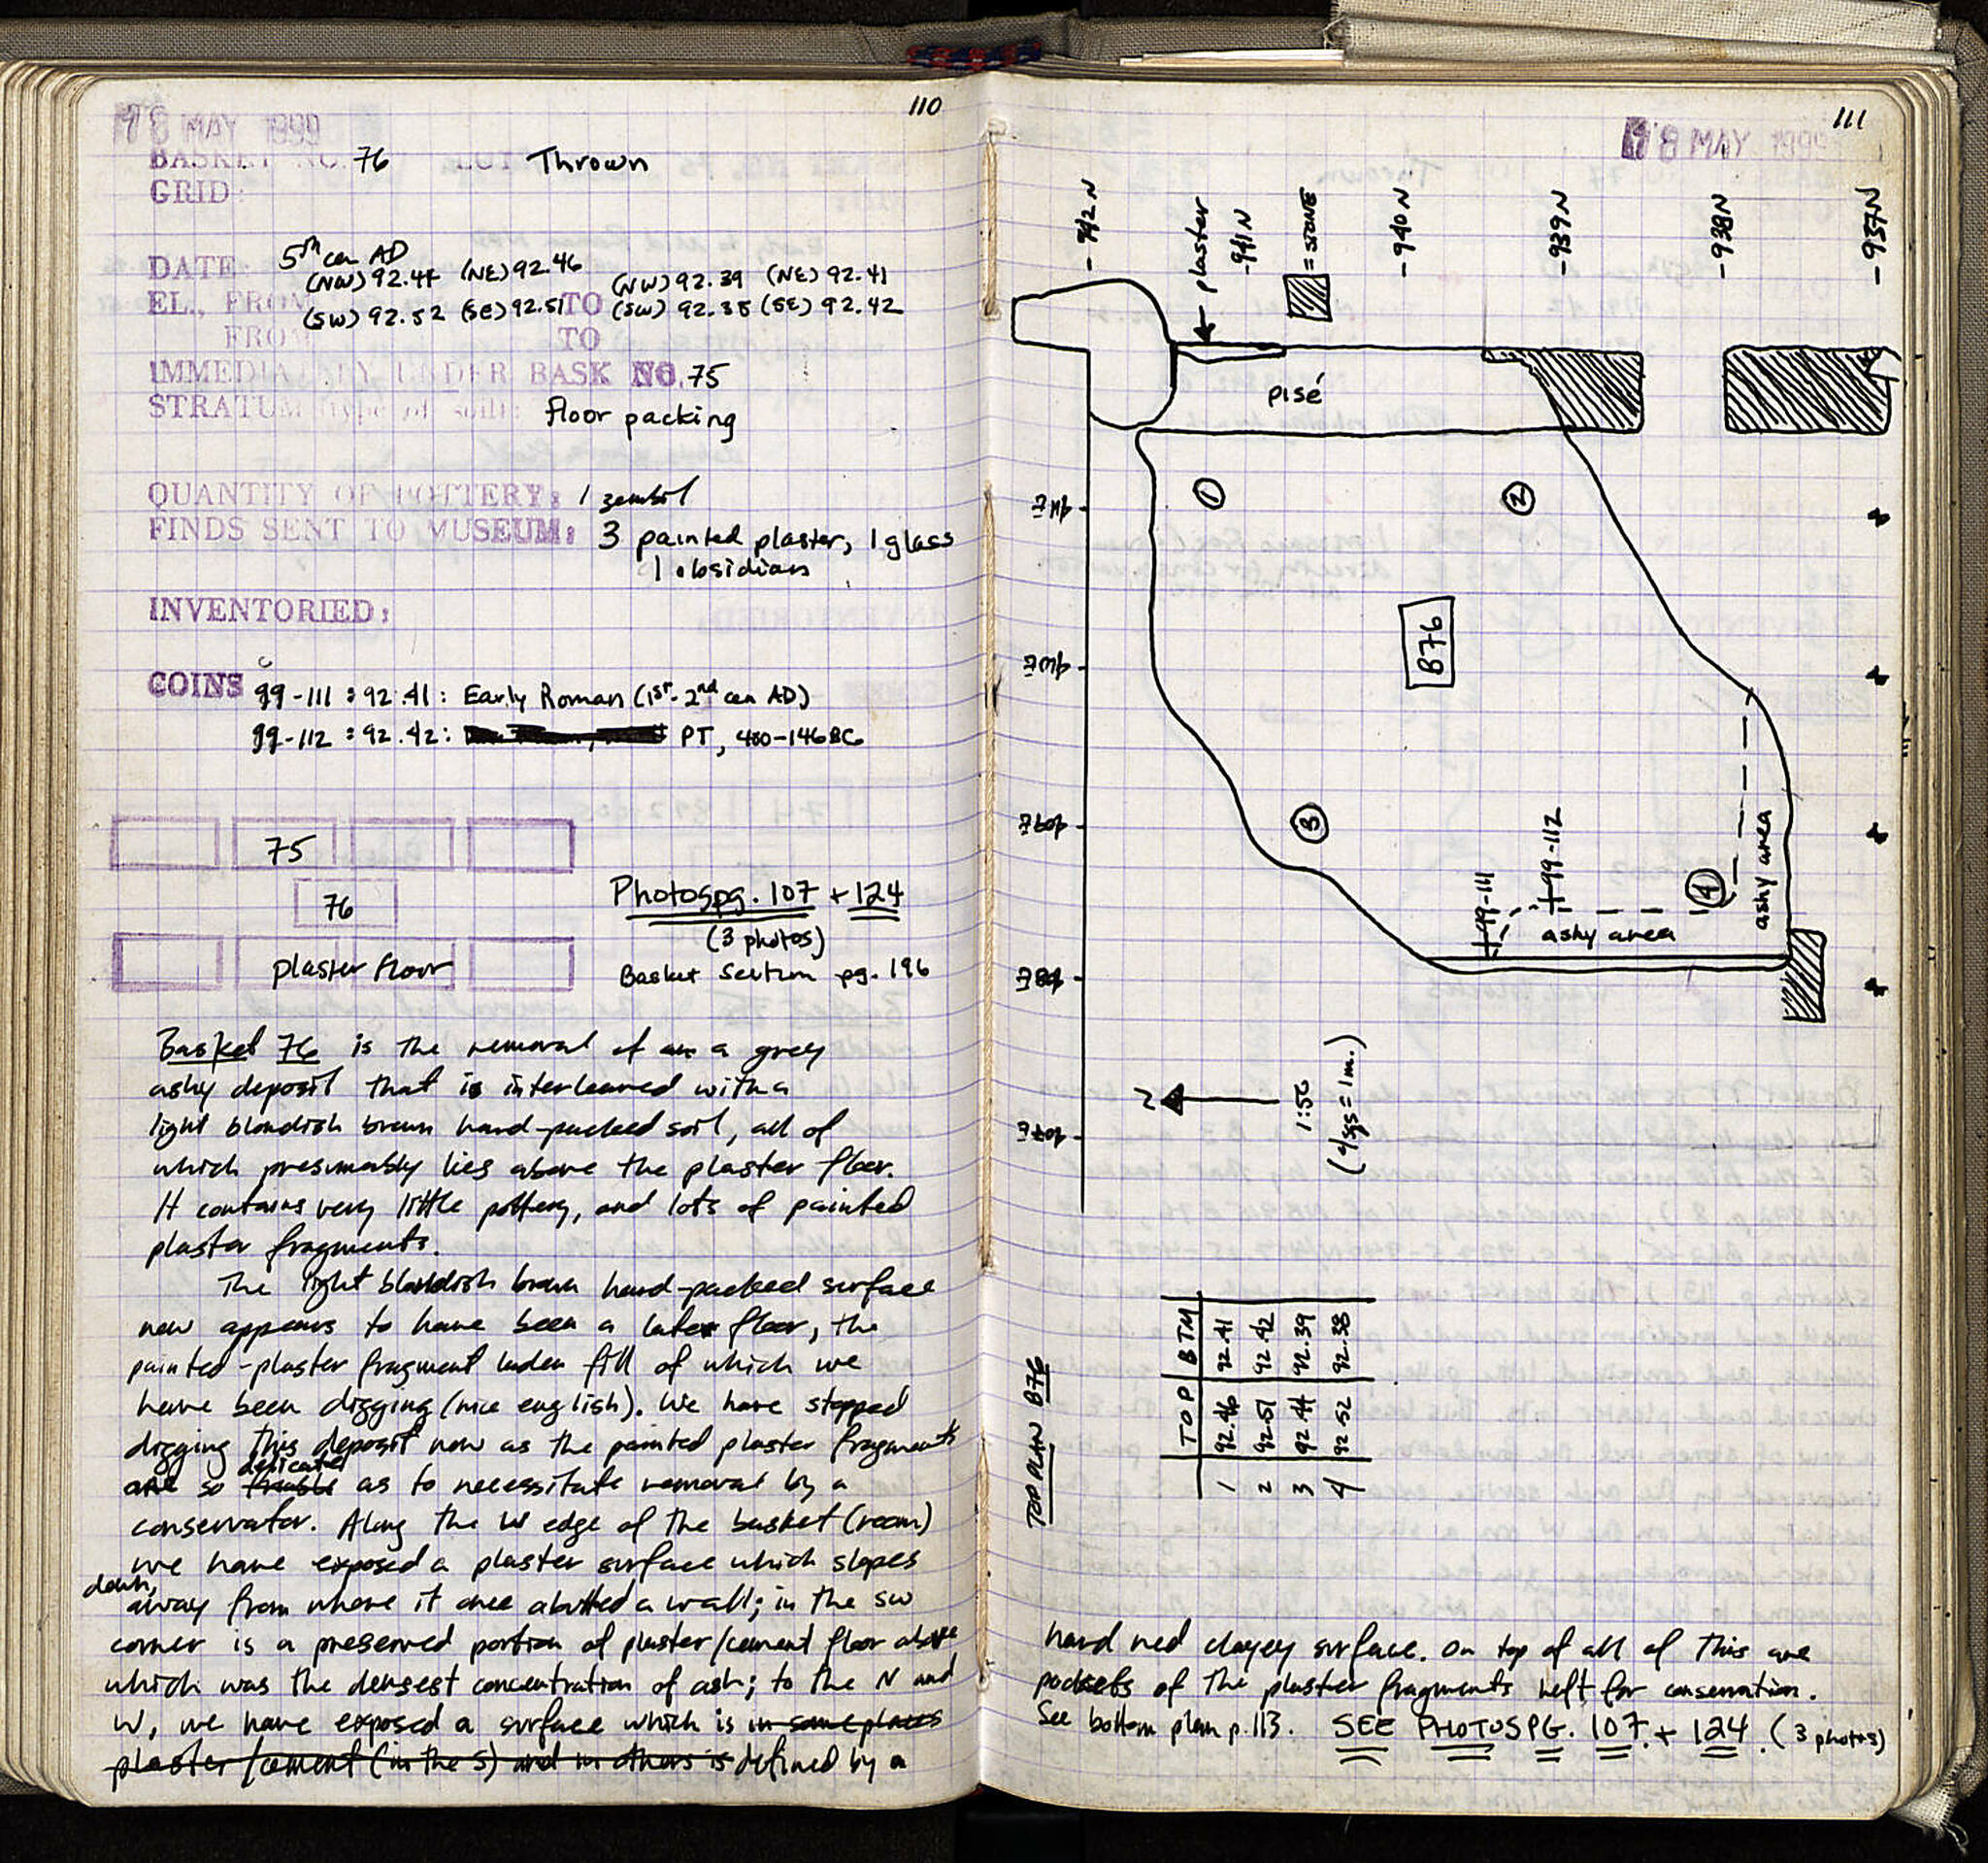 110
18 MAY 1999
BASKET NO. 76 LOT Thrown
GRID:
DATE: 5th cen AD
(NW) 92.44 (NE) 92.46 (NW) 92.39 (NE) 92.41
EL., FROM (SW) 92.52 (SE) 92.51 TO (SW) 92.38 (SE) 92.42
FROM TO
IMMEDIATELY UNDER BASK NO. 75
STRATUM (type of soil): floor packing
QUANTITY OF POTTERY: 1 zembil
FINDS SENT TO MUSEUM: 3 painted plaster, 1 glass
1 obsidian
INVENTORIED:
COINS 99-111 : 92.41 : Early Roman (1st-2nd cen AD)
99-112 : 92.42 : PT, 400-146 BC
75
76
plaster floor
Photos pg. 107 + 124
(3 photos)
Basket Section pg. 196
Basket 76 is the removal of a grey
ashy deposit that is interleaved with a
light blondish brown hard-packed soil, all of
which presumably lies above the plaster floor.
It contains very little pottery, and lots of painted
plaster fragments.
The light blondish brown hard-packed surface
now appears to have been a later floor, the
painted-plaster fragment laden fill of which we
have been digging (nice english). We have stopped
digging this deposit now as the painted plaster fragments
are so friable delicate as to necessitate removal by a
conservator. Along the W edge of the basket (room)
we have exposed a plaster surface which slopes
down, away from where it once abutted a wall; in the SW
corner is a preserved portion of plaster/cement floor above
which was the densest concentration of ash; to the N and
W, we have exposed a surface which is in some places
plaster/cement (in the S) and in others is defined by a
111
18 MAY 1999
-942 N
plaster
-941 N
= STONE
-940 N
-939 N
-938 N
-937 N
pisé
1
2
411E
410E
B76
409E
3
99-111
99-112
4
ashy area
ashy area
408E
N
1:50
(4 sqs = 1m.)
407E
TOP PLAN B76
TOP BTM
1 92.46 92.41
2 92.51 92.42
3 92.44 92.39
4 92.52 92.38
hard red clayey surface. On top of all of this are
pockets of the plaster fragments left for conservation.
See bottom plan p. 113. SEE PHOTOS PG. 107 + 124. (3 photos)